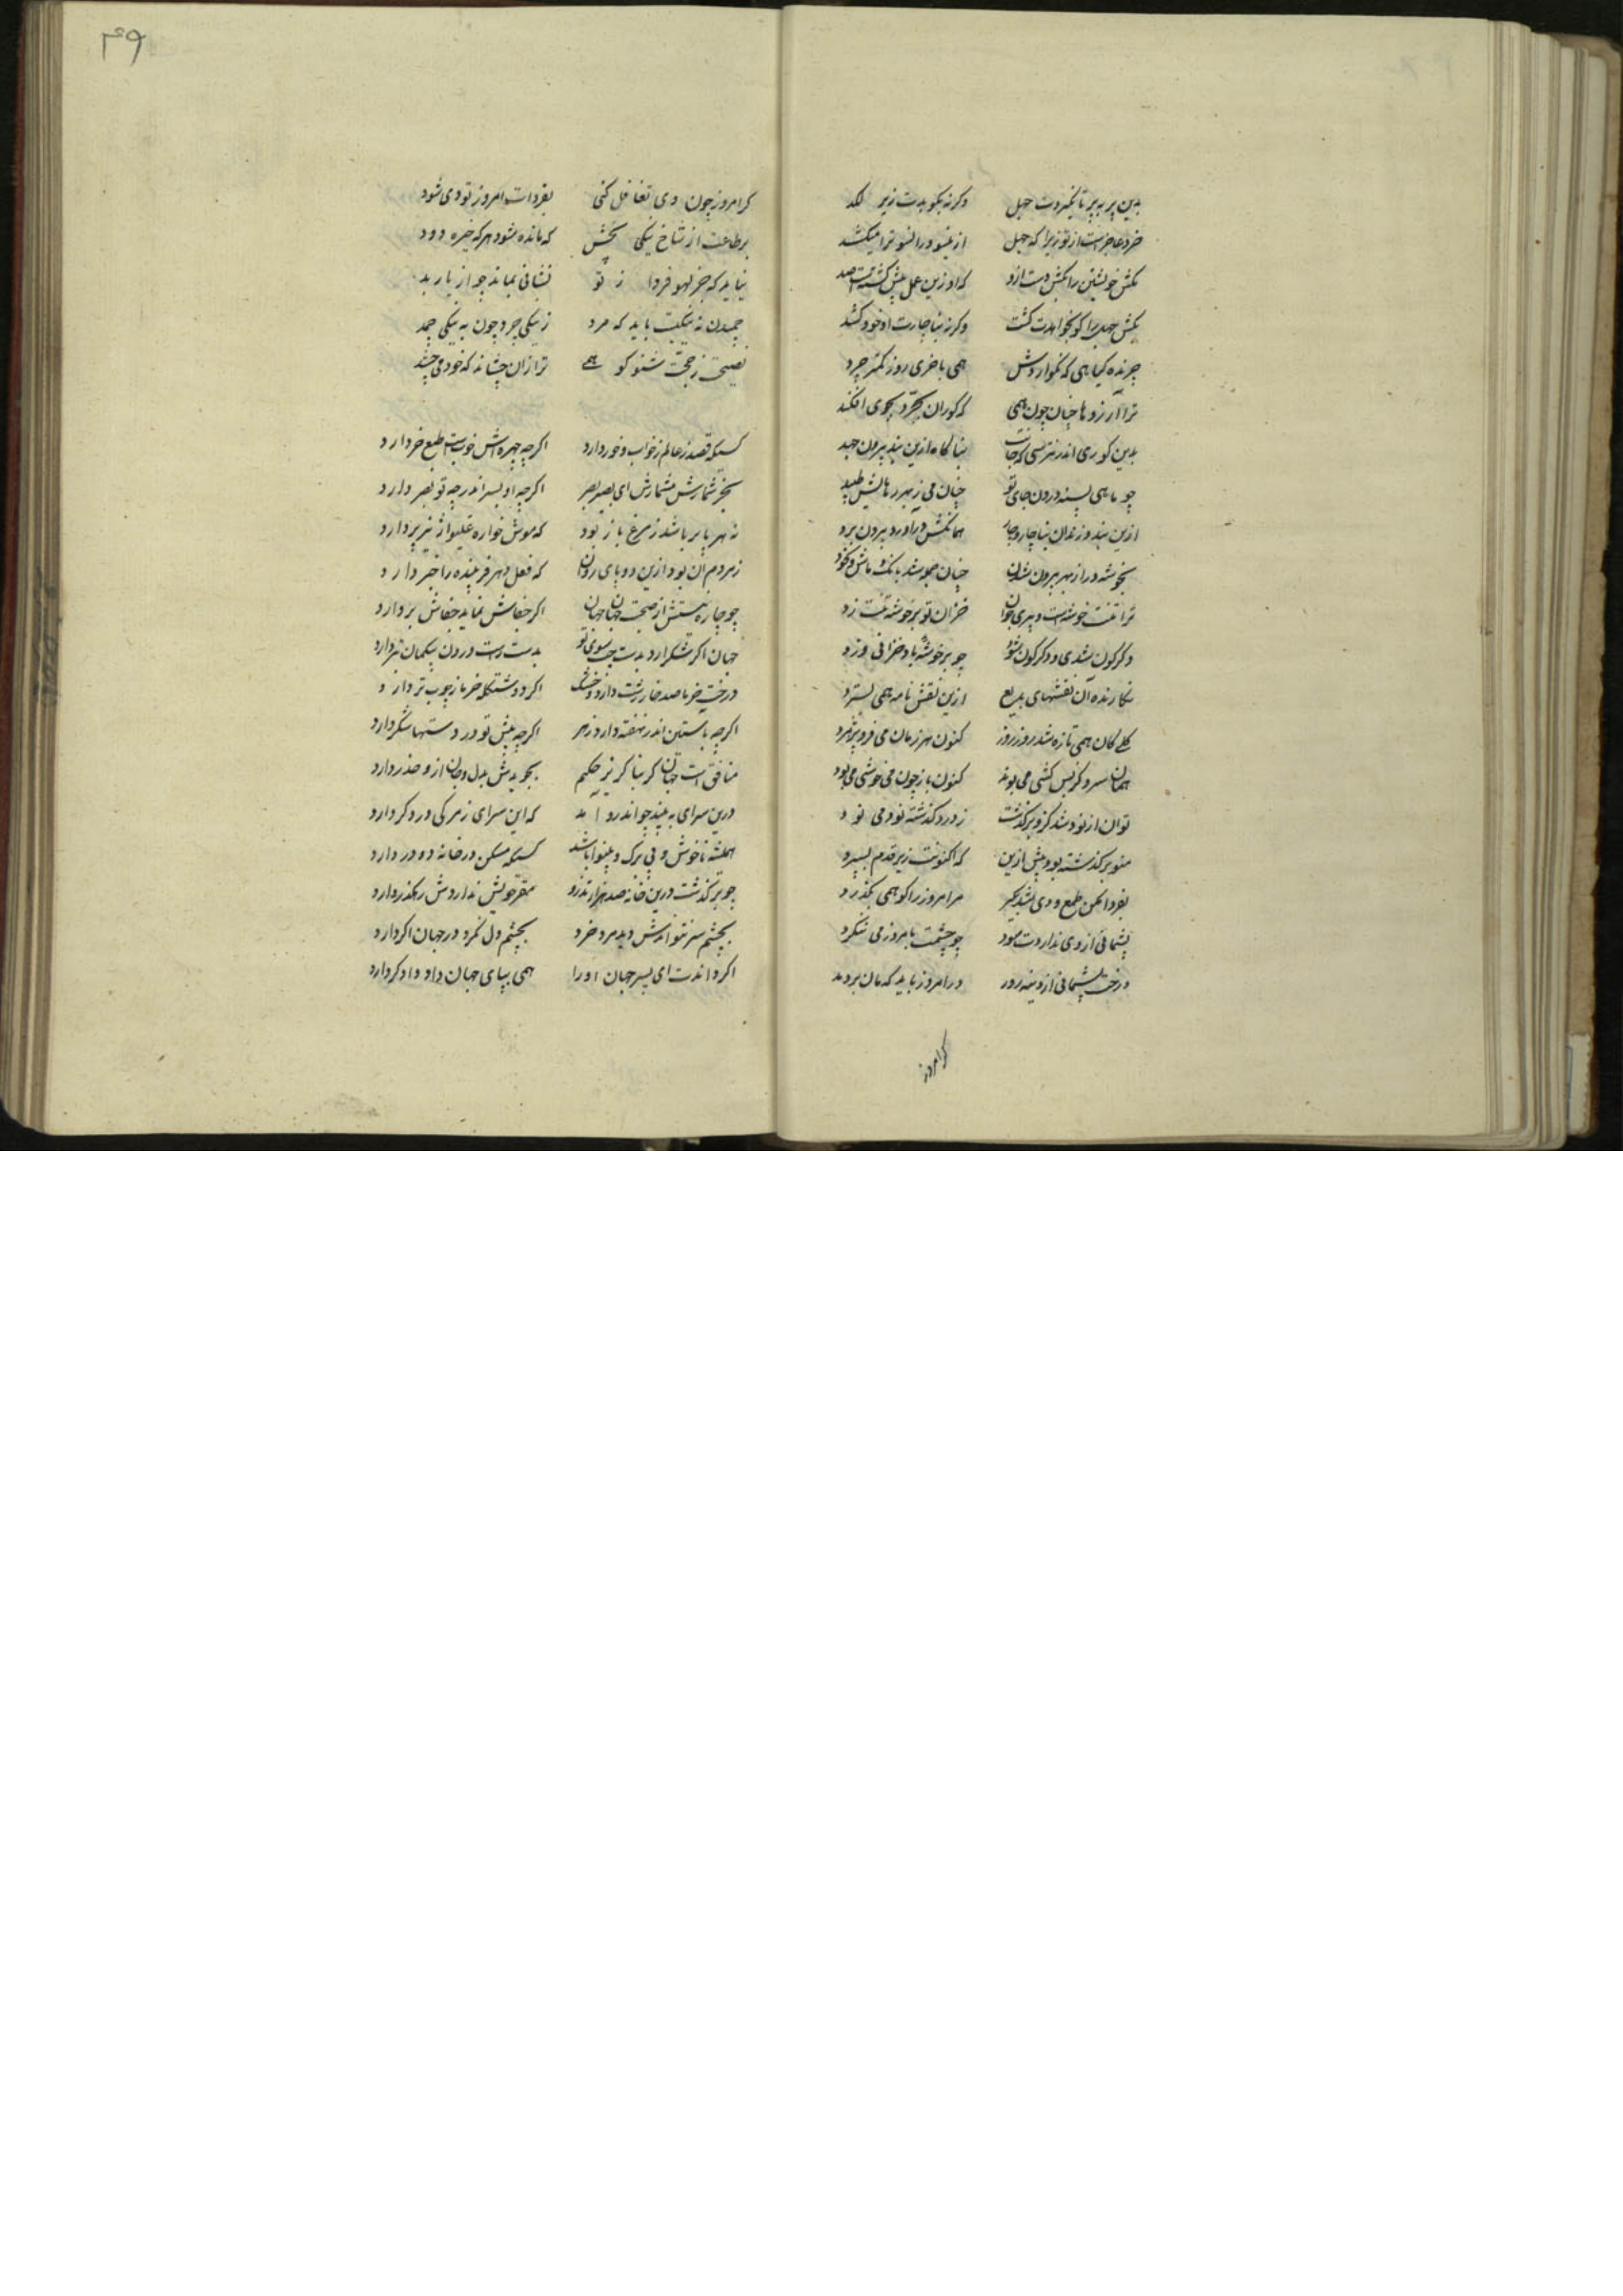 بدین پر بپر تا نگیردت جهل    وگرنه بکوبدت زیر لگد
خرد عاجز است از تو زیرا که جهل    ازینسو و زانسو ترا میکشد
بکش خویشتن را بکش دست ازو    که او زین عمل بیش کشته است صد
بکش جهل را کو بخواهدت کشت    وگرنه بناچارت او خود کشد
چرنده گیاهی که نگواردش    همی با خری روز کمتر چرد
ترا آرزوها چنان چون همی    که کوران بجر و بجوی افکند
بدین کوری اندر نترسی که جانت    بناگاه ازین بند بیرون جهد
چو ماهی بسینه درون جای تو    چنان می ز بهر رهایش طپد
ازین بند و زندان بناچار و چار    همانکش درآورد بیرون برد
بخوشه در از بهر بیرون شدن    چنان جوشد بانگ و ماش و نخود
ترا تنت خوشه است و پیری خزان    خزان تو بر خوشه تنت زد
دگرگون شدی و دگرگون شود    چو بر خوشه باد خزانی وزد
نگارنده آن نقشهای بدیع    ازین نقش نامه همی بسترد
گلی کان همی تازه شد روز روز    کنون هر زمان می فرو پژمرد
همان سرو کز بس کشی می نوند    کنون باز چون می خوشی می بود
توان از تو دور شد کزو برگذشت    ز درد گذشته نود می نود
منو برگذشته بود پیش ازین    که اکنونت زیر قدم بسپرد
بفردا مکن طمع و دی شد مگیر    مر امروز را کو همی بگذرد
پشیمانی از دی نداردت سود    چو چشمت بامروز می ننگرد
درخت پشیمانی از دینه روز    در امروز باید که مان بر دهد
گر امروز
۴۹
گر امروز چون دی تغافل کنی    بفردات امروز تو دی شود
بر طاعت از شاخ نیکی بچش    که مانده شود هرکه خیره دود
نیاید که جز لهو فردا ز تو    نشانی نماند چو از بار بد
چمیدن به نیکیت باید که مرد    ز نیکی چرد چون به نیکی چمد
نصیحت ز حجت شنو کو همی    ترا زان چشاند که خود می چشد
کسیکه قصد ز عالم بخواب و خور دارد    اگرچه چهره اش خوبست طبع خر دارد
بخر شمارش مشمارش ای بصیر بصر    اگرچه او بسر اندر چو تو بصر دارد
نه هرچه با پر باشد ز مرغ باز بود    که موش خواره غلیواژ نیز پر دارد
ز مردم آن بود ازین دو پای روان    که فعل دهر فریبنده را خبر دارد
چو چاره نیستش از صحبت جهان جهان    اگر جفاش نماید جفاش بردارد
جهان اگر شکر آرد بدست چپ سوی تو    بدست راست درون بیگمان تبر دارد
درخت خرما صد خار زشت دارد و خشک    اگر دو شنگله خرمای خوب تر دارد
اگرچه باستین اندر نهفته دارد زهر    اگرچه پیش تو در دستها شکر دارد
منافق است جهان گر بناگزیر حکیم    بجویدش بدل و جان ازو حذر دارد
درین سرای ببیند چو اندرو آمد    که این سرای ز مرگی در دگر دارد
همیشه ناخوش و بی برگ و بینوا باشد    کسیکه مسکن در خانه دو در دارد
چو برگذشت درین خانه صد هزار تذرو    مقر خویش نداردش رهگذر دارد
بچشم سر نتواندش دید مرد خرد    بچشم دل نگرد در جهان اگر دارد
اگر داندت ای پسر جهان او را    همی بپای جهان داد دادگر دارد